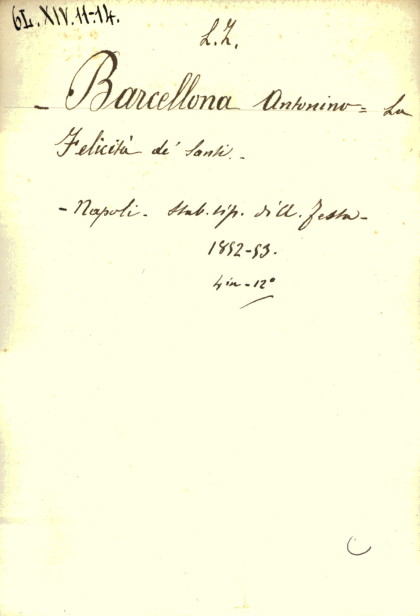 6L.XIV.11-14.
L.Z.
- Barcellona Antonino = La
Felicità de' Santi. -
- Napoli - Stab. tip. di A. Festa -
1852-53.
4 in - 12°